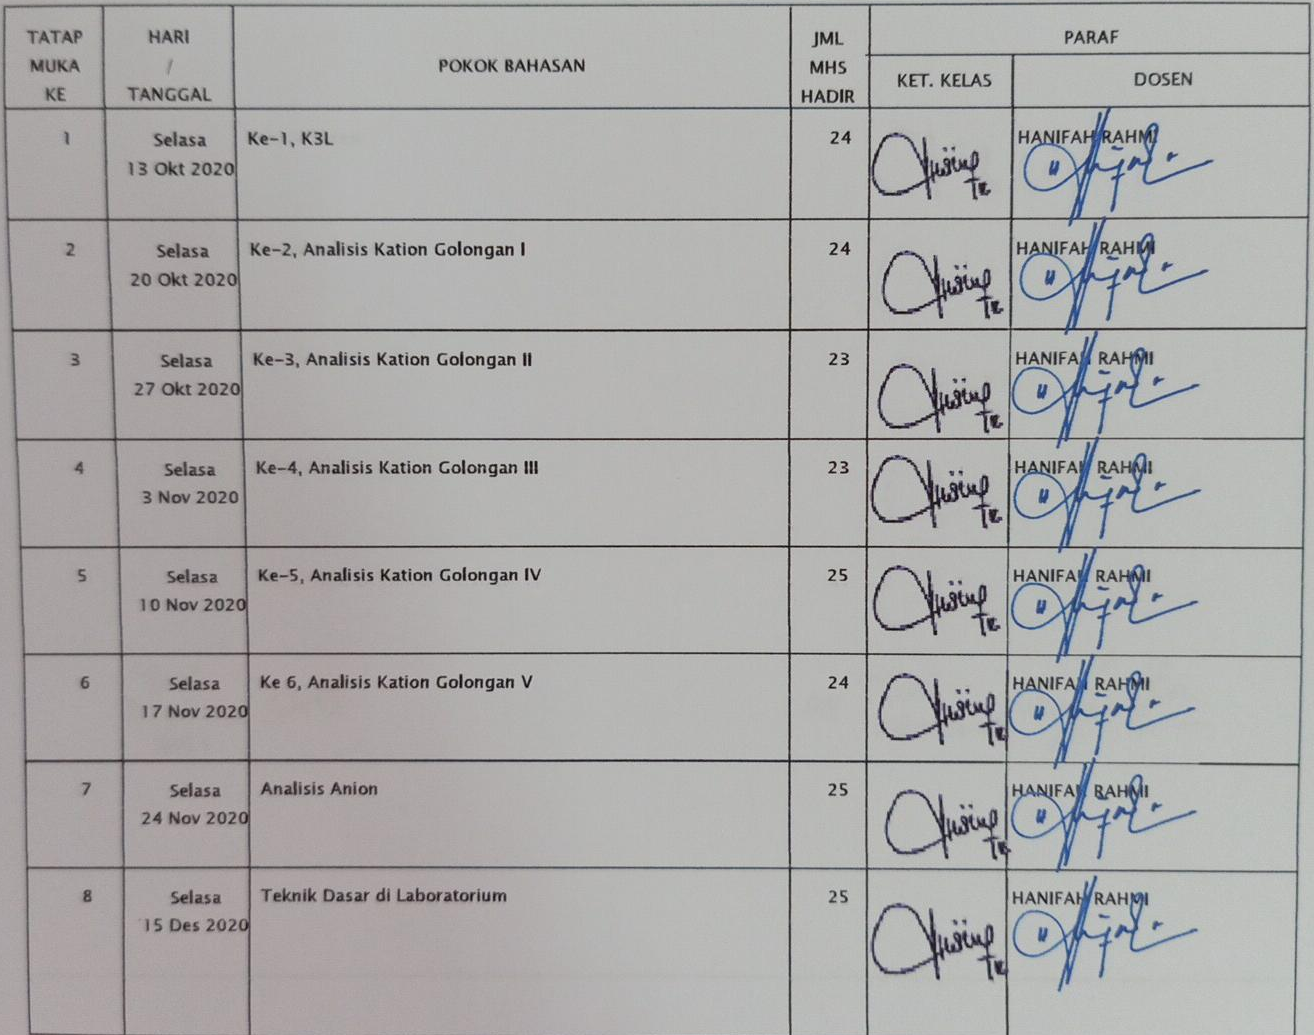 TATAP MUKA KE
HARI / TANGGAL
POKOK BAHASAN
JML MHS HADIR
PARAF
KET. KELAS
DOSEN
1
Selasa
13 Okt 2020
Ke-1, K3L
24
HANIFAH RAHMI
2
Selasa
20 Okt 2020
Ke-2, Analisis Kation Golongan I
24
HANIFAH RAHMI
3
Selasa
27 Okt 2020
Ke-3, Analisis Kation Golongan II
23
HANIFAH RAHMI
4
Selasa
3 Nov 2020
Ke-4, Analisis Kation Golongan III
23
HANIFAH RAHMI
5
Selasa
10 Nov 2020
Ke-5, Analisis Kation Golongan IV
25
HANIFAH RAHMI
6
Selasa
17 Nov 2020
Ke 6, Analisis Kation Golongan V
24
HANIFAH RAHMI
7
Selasa
24 Nov 2020
Analisis Anion
25
HANIFAH RAHMI
8
Selasa
15 Des 2020
Teknik Dasar di Laboratorium
25
HANIFAH RAHMI